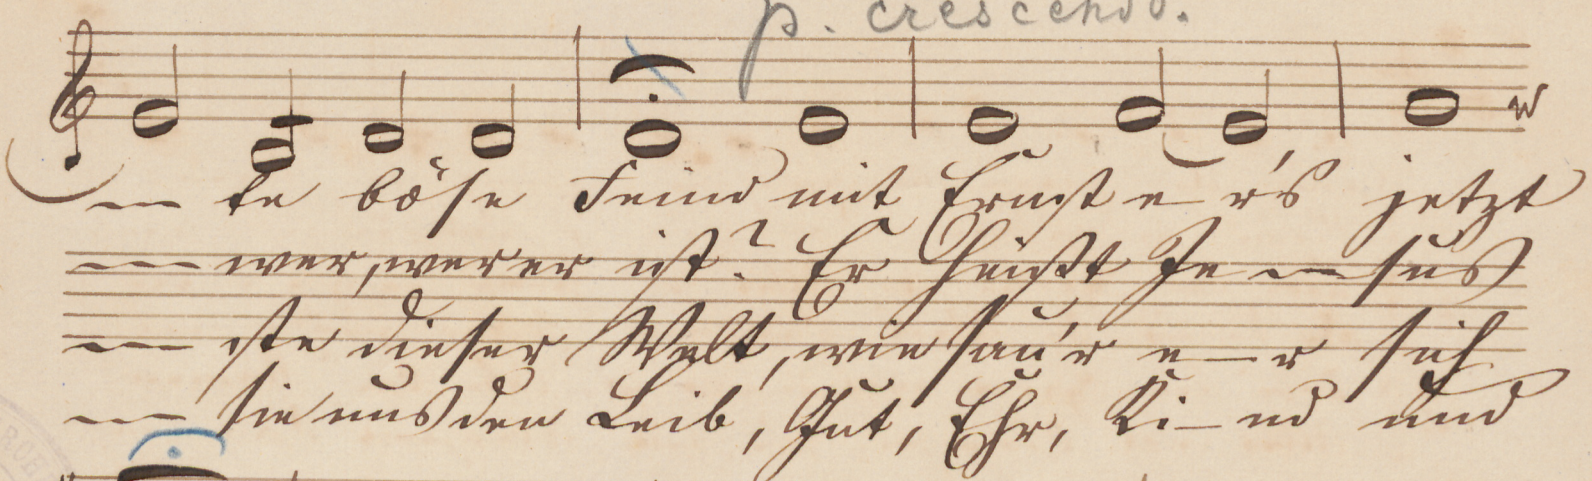 p. crescendo.
— te böse Feind mit Ernst e — r's jetzt
— wer, wer er ist? Er heißt Je — sus
— ste dieser Welt, wie sau'r e — r sich
— sie uns den Leib, Gut, Ehr, Ki — nd und